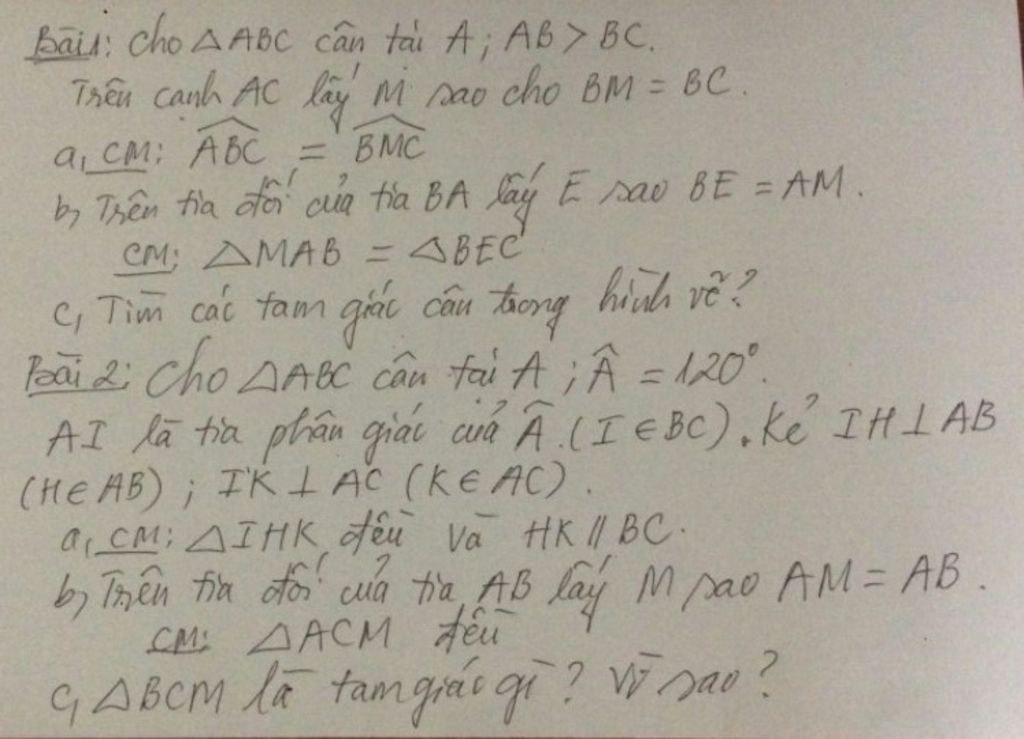 Bài 1: Cho △ABC cân tại A; AB > BC.
Trên cạnh AC lấy M sao cho BM = BC.
a, CM: \widehat{ABC} = \widehat{BMC}
b, Trên tia đối của tia BA lấy E sao BE = AM.
CM: △MAB = △BEC
c, Tìm các tam giác cân trong hình vẽ?
Bài 2: Cho △ABC cân tại A; Â = 120°.
AI là tia phân giác của Â. (I ∈ BC). Kẻ IH ⊥ AB
(H ∈ AB); IK ⊥ AC (K ∈ AC).
a, CM: △IHK đều và HK // BC.
b, Trên tia đối của tia AB lấy M sao AM = AB.
CM: △ACM đều
c, △BCM là tam giác gì? Vì sao?